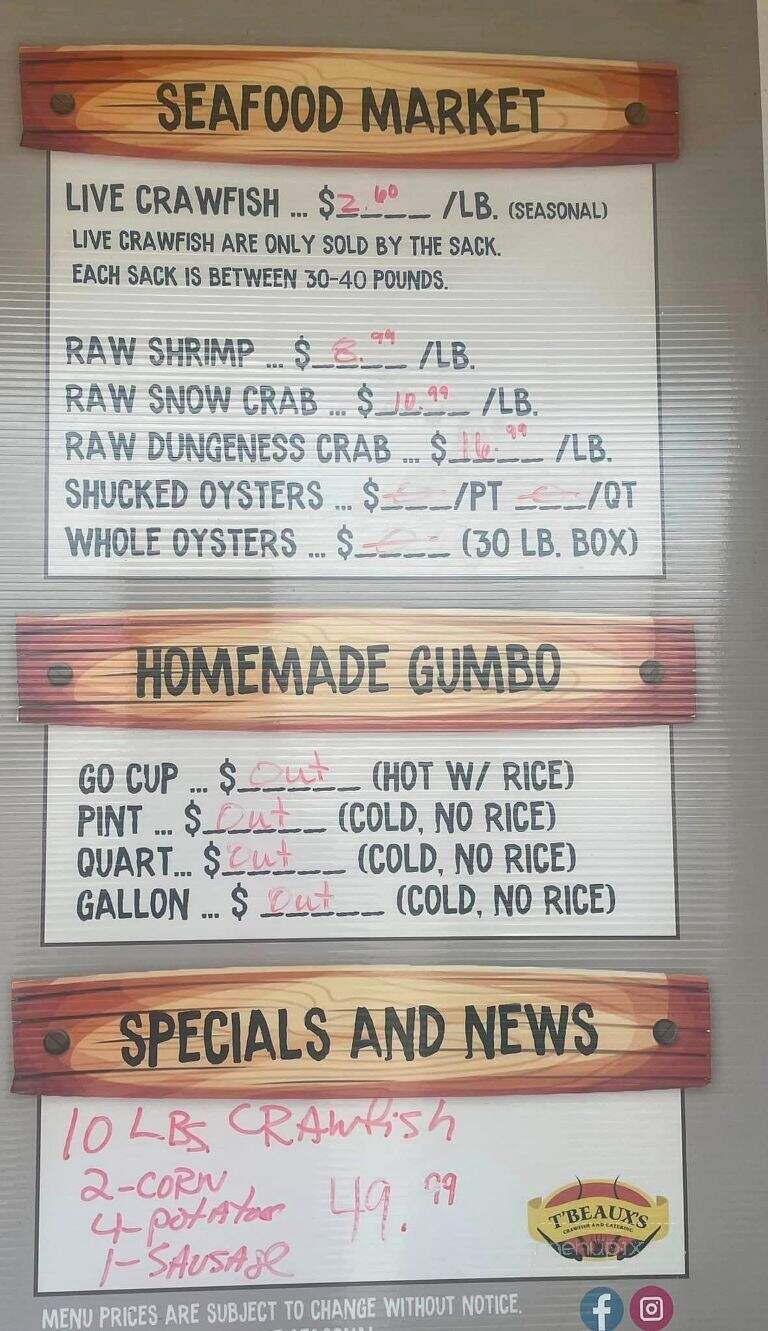 SEAFOOD MARKET
LIVE CRAWFISH ... $2.60 /LB. (SEASONAL)
LIVE CRAWFISH ARE ONLY SOLD BY THE SACK.
EACH SACK IS BETWEEN 30-40 POUNDS.
RAW SHRIMP ... $8.99 /LB.
RAW SNOW CRAB ... $10.99 /LB.
RAW DUNGENESS CRAB ... $16.99 /LB.
SHUCKED OYSTERS ... $____/PT ____/QT
WHOLE OYSTERS ... $_____ (30 LB. BOX)
HOMEMADE GUMBO
GO CUP ... $ Out (HOT W/ RICE)
PINT ... $ Out (COLD, NO RICE)
QUART... $ Out (COLD, NO RICE)
GALLON ... $ Out (COLD, NO RICE)
SPECIALS AND NEWS
10 LBS CRAWfish
2-CORN
4-potatoes 49.99
1-SAUSAGE
T'BEAUX'S
CRAWFISH AND CATERING
menupix
MENU PRICES ARE SUBJECT TO CHANGE WITHOUT NOTICE.